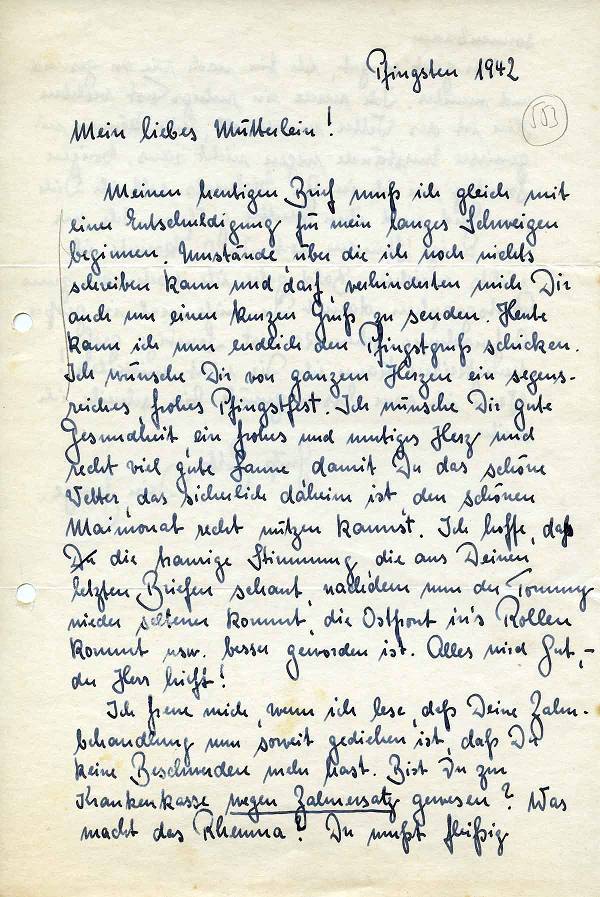 Pfingsten 1942
533
Mein liebes Mütterlein!
Meinen heutigen Brief muß ich gleich mit
einer Entschuldigung für mein langes Schweigen
beginnen. Umstände, über die ich noch nichts
schreiben kann und darf, verhinderten mich Dir
auch nur einen kurzen Gruß zu senden. Heute
kann ich nun endlich den Pfingstgruß schicken.
Ich wünsche Dir von ganzem Herzen ein segens-
reiches, frohes Pfingstfest. Ich wünsche Dir gute
Gesundheit, ein frohes und mutiges Herz und
recht viel gute Laune, damit Du das schöne
Wetter, das sicherlich daheim ist, den schönen
Maimonat recht nützen kannst. Ich hoffe, daß
die traurige Stimmung, die aus Deinen
letzten Briefen schaut, nachdem nun der Tommy
wieder seltener kommt, die Ostfront in's Rollen
kommt usw. besser geworden ist. Alles wird Gut, -
der Herr hilft!
Ich freue mich, wenn ich lese, daß Deine Zahn-
behandlung nun soweit gediehen ist, daß Du
keine Beschwerden mehr hast. Bist Du zur
Krankenkasse wegen Zahnersatz gewesen? Was
macht das Rheuma? Du mußt fleißig